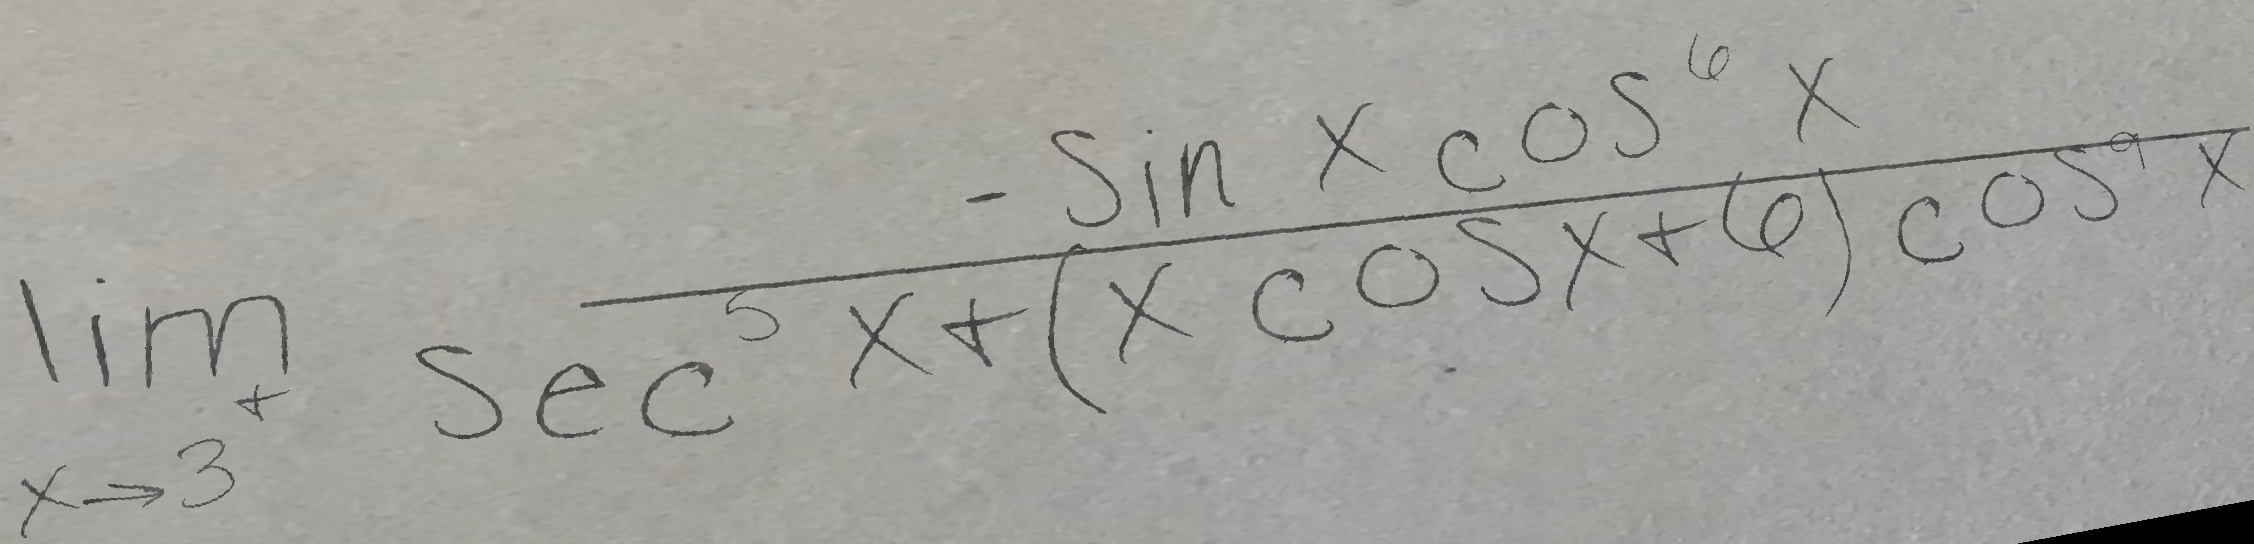 \lim_{x \to 3^+} \frac{-\sin x \cos^6 x}{\sec^5 x + (x \cos x + 6) \cos^9 x}